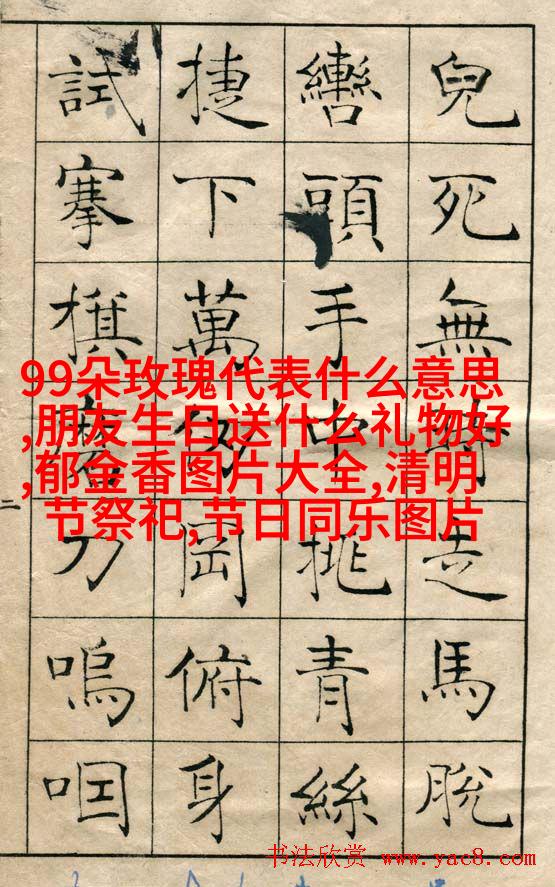 兒死無時走馬脫
轡頭手中挑青絲
捷下萬仞岡俯身
試搴旗磨刀嗚咽
二
99朵玫瑰代表什么意思
,朋友生日送什么礼物好
,郁金香图片大全,清明
节祭祀,节日同乐图片
书法欣赏 www.yac8.com